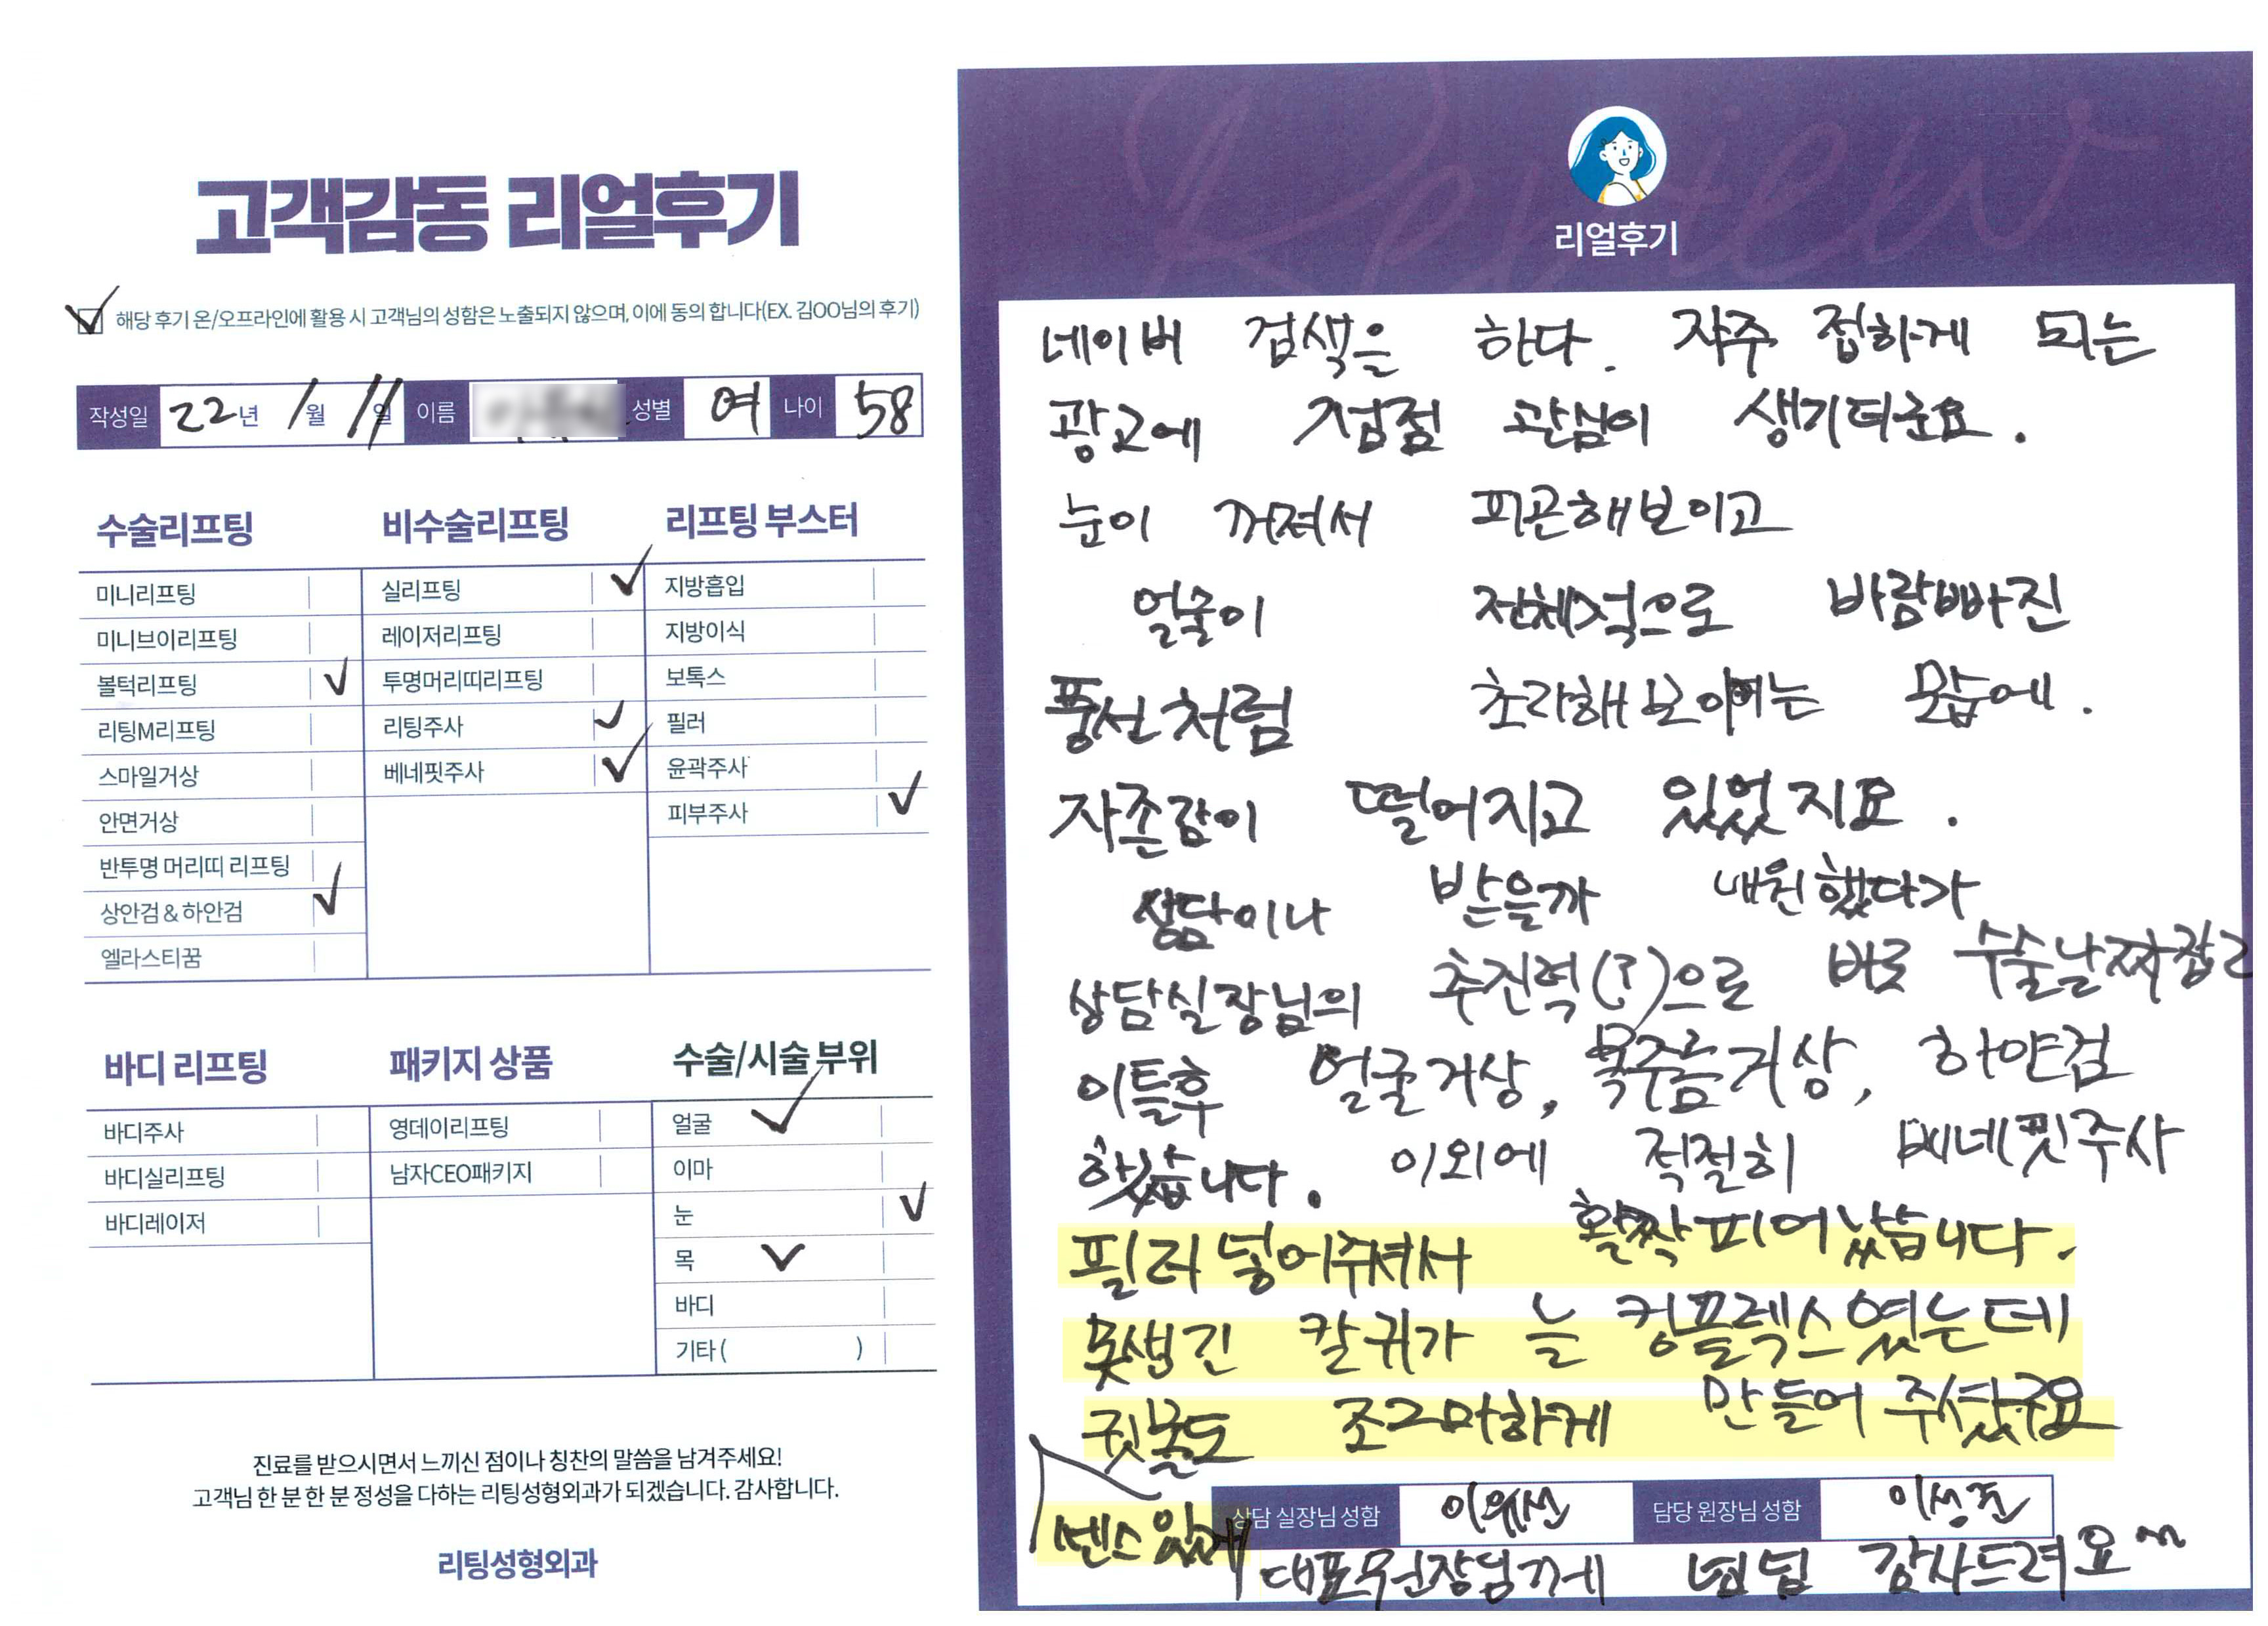 고객감동 리얼후기
해당 후기 온/오프라인에 활용 시 고객님의 성함은 노출되지 않으며, 이에 동의 합니다(EX. 김OO님의 후기)
작성일 22년 1월 11일 이름 성별 여 나이 58
수술리프팅
미니리프팅
미니브이리프팅
볼턱리프팅
리팅M리프팅
스마일거상
안면거상
반투명 머리띠 리프팅
상안검 & 하안검
엘라스티꿈
비수술리프팅
실리프팅
레이저리프팅
투명머리띠리프팅
리팅주사
베네핏주사
리프팅 부스터
지방흡입
지방이식
보톡스
필러
윤곽주사
피부주사
바디 리프팅
바디주사
바디실리프팅
바디레이저
패키지 상품
영데이리프팅
남자CEO패키지
수술/시술 부위
얼굴
이마
눈
목
바디
기타 ( )
진료를 받으시면서 느끼신 점이나 칭찬의 말씀을 남겨주세요!
고객님 한 분 한 분 정성을 다하는 리팅성형외과가 되겠습니다. 감사합니다.
리팅성형외과
Review
리얼후기
네이버 검색을 하다. 자주 접하게 되는
광고에 점점 관심이 생기더군요.
눈이 꺼져서 피곤해보이고
얼굴이 전체적으로 바람빠진
풍선처럼 초라해보이는 모습에.
자존감이 떨어지고 있었지요.
상담이나 받을까 내원했다가
상담실장님의 추진력(?)으로 바로 수술날짜잡고
이틀후 얼굴거상, 목주름거상, 하안검
했습니다. 이외에 적절히 베네핏주사
필러 넣어주셔서 활짝 피어났습니다.
못생긴 칼귀가 늘 컴플렉스였는데
귓볼도 조그마하게 만들어 주셨구요
센스있게
상담 실장님 성함 담당 원장님 성함
대표원장님께 넘넘 감사드려요~